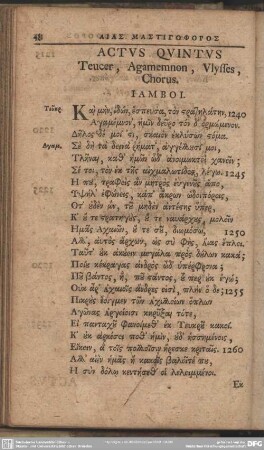 48 ΑΙΑΣ ΜΑΣΤΙΓΟΦΟΡΟΣ
ACTVS QVINTVS
Teucer, Agamemnon, Vlysses,
Chorus.
IAMBOI.
Τεῦκρ. Καὶ μὴν ἰδὼν ἔσπευσα, τὸν στρατηλάτην, 1240
Ἀγαμέμνον', ἡμῖν δεῦρο τόνδ' ὁρμώμενον.
Δῆλος δέ μοι 'στὶ, σκαιὸν ἐκλύσων στόμα.
Αγαμ. Σὲ δὴ τὰ δεινὰ ῥήματ' ἀγγέλλουσί μοι,
Τλῆναι, καθ' ἡμῶν ὧδ' ἀνοιμωκτεὶ χανεῖν;
Σέ τοι τὸν ἐκ τῆς αἰχμαλωτίδος, λέγω. 1245
Ἦ που, τραφεὶς ἂν μητρὸς εὐγενοῦς ἄπο,
Ὑψήλ' ἐφώνεις, κἀπ' ἄκρων ὡδοιπόρεις,
Ὅτ' οὐδὲν ὢν, τοῦ μηδὲν ἀντέστης ὕπερ,
Κ' οὔτε στρατηγοὺς, οὔτε ναυάρχους, μολεῖν
Ἡμᾶς Ἀχαιῶν, οὔτε σοῦ, διωμόσω, 1250
Ἀλλ', αὐτὸς ἄρχων, ὡς σὺ φῂς, Αἴας ἔπλει.
Ταῦτ' οὐκ ἀκούειν μεγάλα πρὸς δούλων κακά;
Ποίου κέκραγας ἀνδρὸς ὧδ' ὑπέρφρονα;
Ποῦ βάντος, ἢ ποῦ στάντος, οὗπερ οὐκ ἐγώ;
Οὐκ ἆρ' Ἀχαιοῖς ἄνδρες εἰσὶ, πλὴν ὅδε; 1255
Πικροὺς ἔοιγμεν τῶν Ἀχιλλείων ὅπλων
Ἀγῶνας Ἀργείοισι κηρῦξαι τότε,
Εἰ πανταχῆ φανούμεθ' ἐκ Τεύκρου κακοί.
Κ' οὐκ ἀρκέσει ποθ' ἡμῖν, οὐδ' ἡσσημένοις,
Εἴκειν, ἃ τοῖς πολλοῖσιν ἤρεσκε κριταῖς. 1260
Ἀλλ' αἰὲν ἡμᾶς ἢ κακοῖς βαλεῖτέ που,
Ἢ σὺν δόλῳ κεντήσεθ' οἱ λελειμμένοι.
Ἐκ